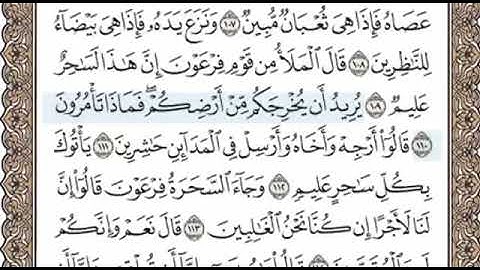 عَصَاهُ فَإِذَا هِىَ ثُعْبَانٌ مُّبِينٌ ١٠٧ وَنَزَعَ يَدَهُۥ فَإِذَا هِىَ بَيْضَآءُ
لِلنَّٰظِرِينَ ١٠٨ قَالَ ٱلْمَلَأُ مِن قَوْمِ فِرْعَوْنَ إِنَّ هَٰذَا لَسَٰحِرٌ
عَلِيمٌ ١٠٩ يُرِيدُ أَن يُخْرِجَكُم مِّنْ أَرْضِكُمْ ۖ فَمَاذَا تَأْمُرُونَ
١١٠ قَالُوٓا۟ أَرْجِهْ وَأَخَاهُ وَأَرْسِلْ فِى ٱلْمَدَآئِنِ حَٰشِرِينَ ١١١ يَأْتُوكَ
بِكُلِّ سَٰحِرٍ عَلِيمٍ ١١٢ وَجَآءَ ٱلسَّحَرَةُ فِرْعَوْنَ قَالُوٓا۟ إِنَّ
لَنَا لَأَجْرًا إِن كُنَّا نَحْنُ ٱلْغَٰلِبِينَ ١١٣ قَالَ نَعَمْ وَإِنَّكُمْ